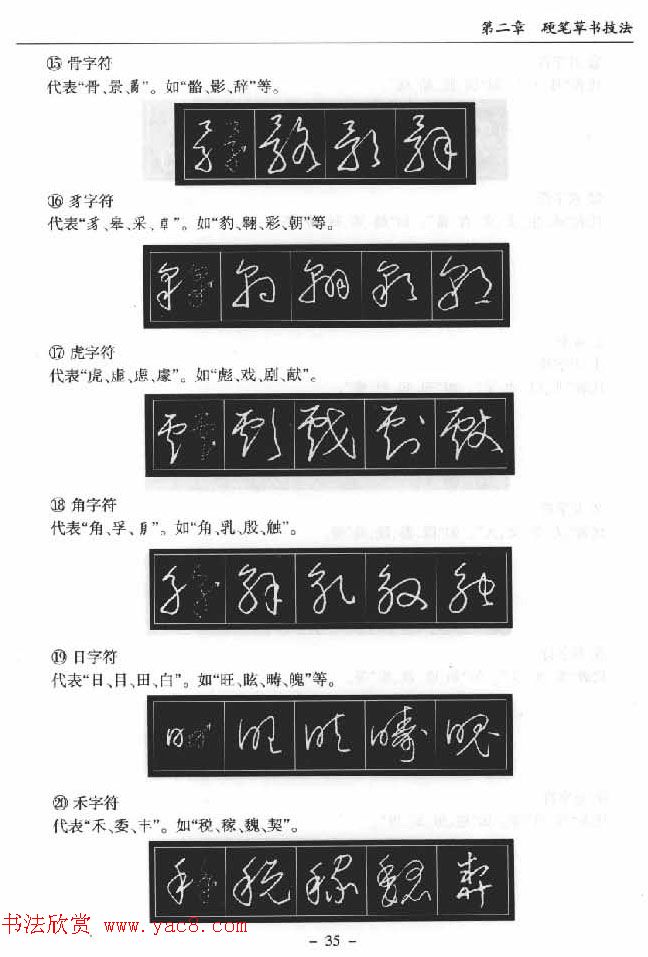 第二章 硬笔草书技法
⑮ 骨字符
代表“骨、景、𤔔”。如“骼、影、辞”等。
⑯ 豸字符
代表“豸、皋、采、𠦝”。如“豹、翱、彩、朝”等。
⑰ 虎字符
代表“虎、虚、虑、豦”。如“彪、戏、剧、献”。
⑱ 角字符
代表“角、孚、㐆”。如“角、乳、殷、触”。
⑲ 日字符
代表“日、目、田、白”。如“旺、眩、畴、魄”等。
⑳ 禾字符
代表“禾、委、丰”。如“税、稼、魏、契”。
书法欣赏 www.yac8.com
- 35 -